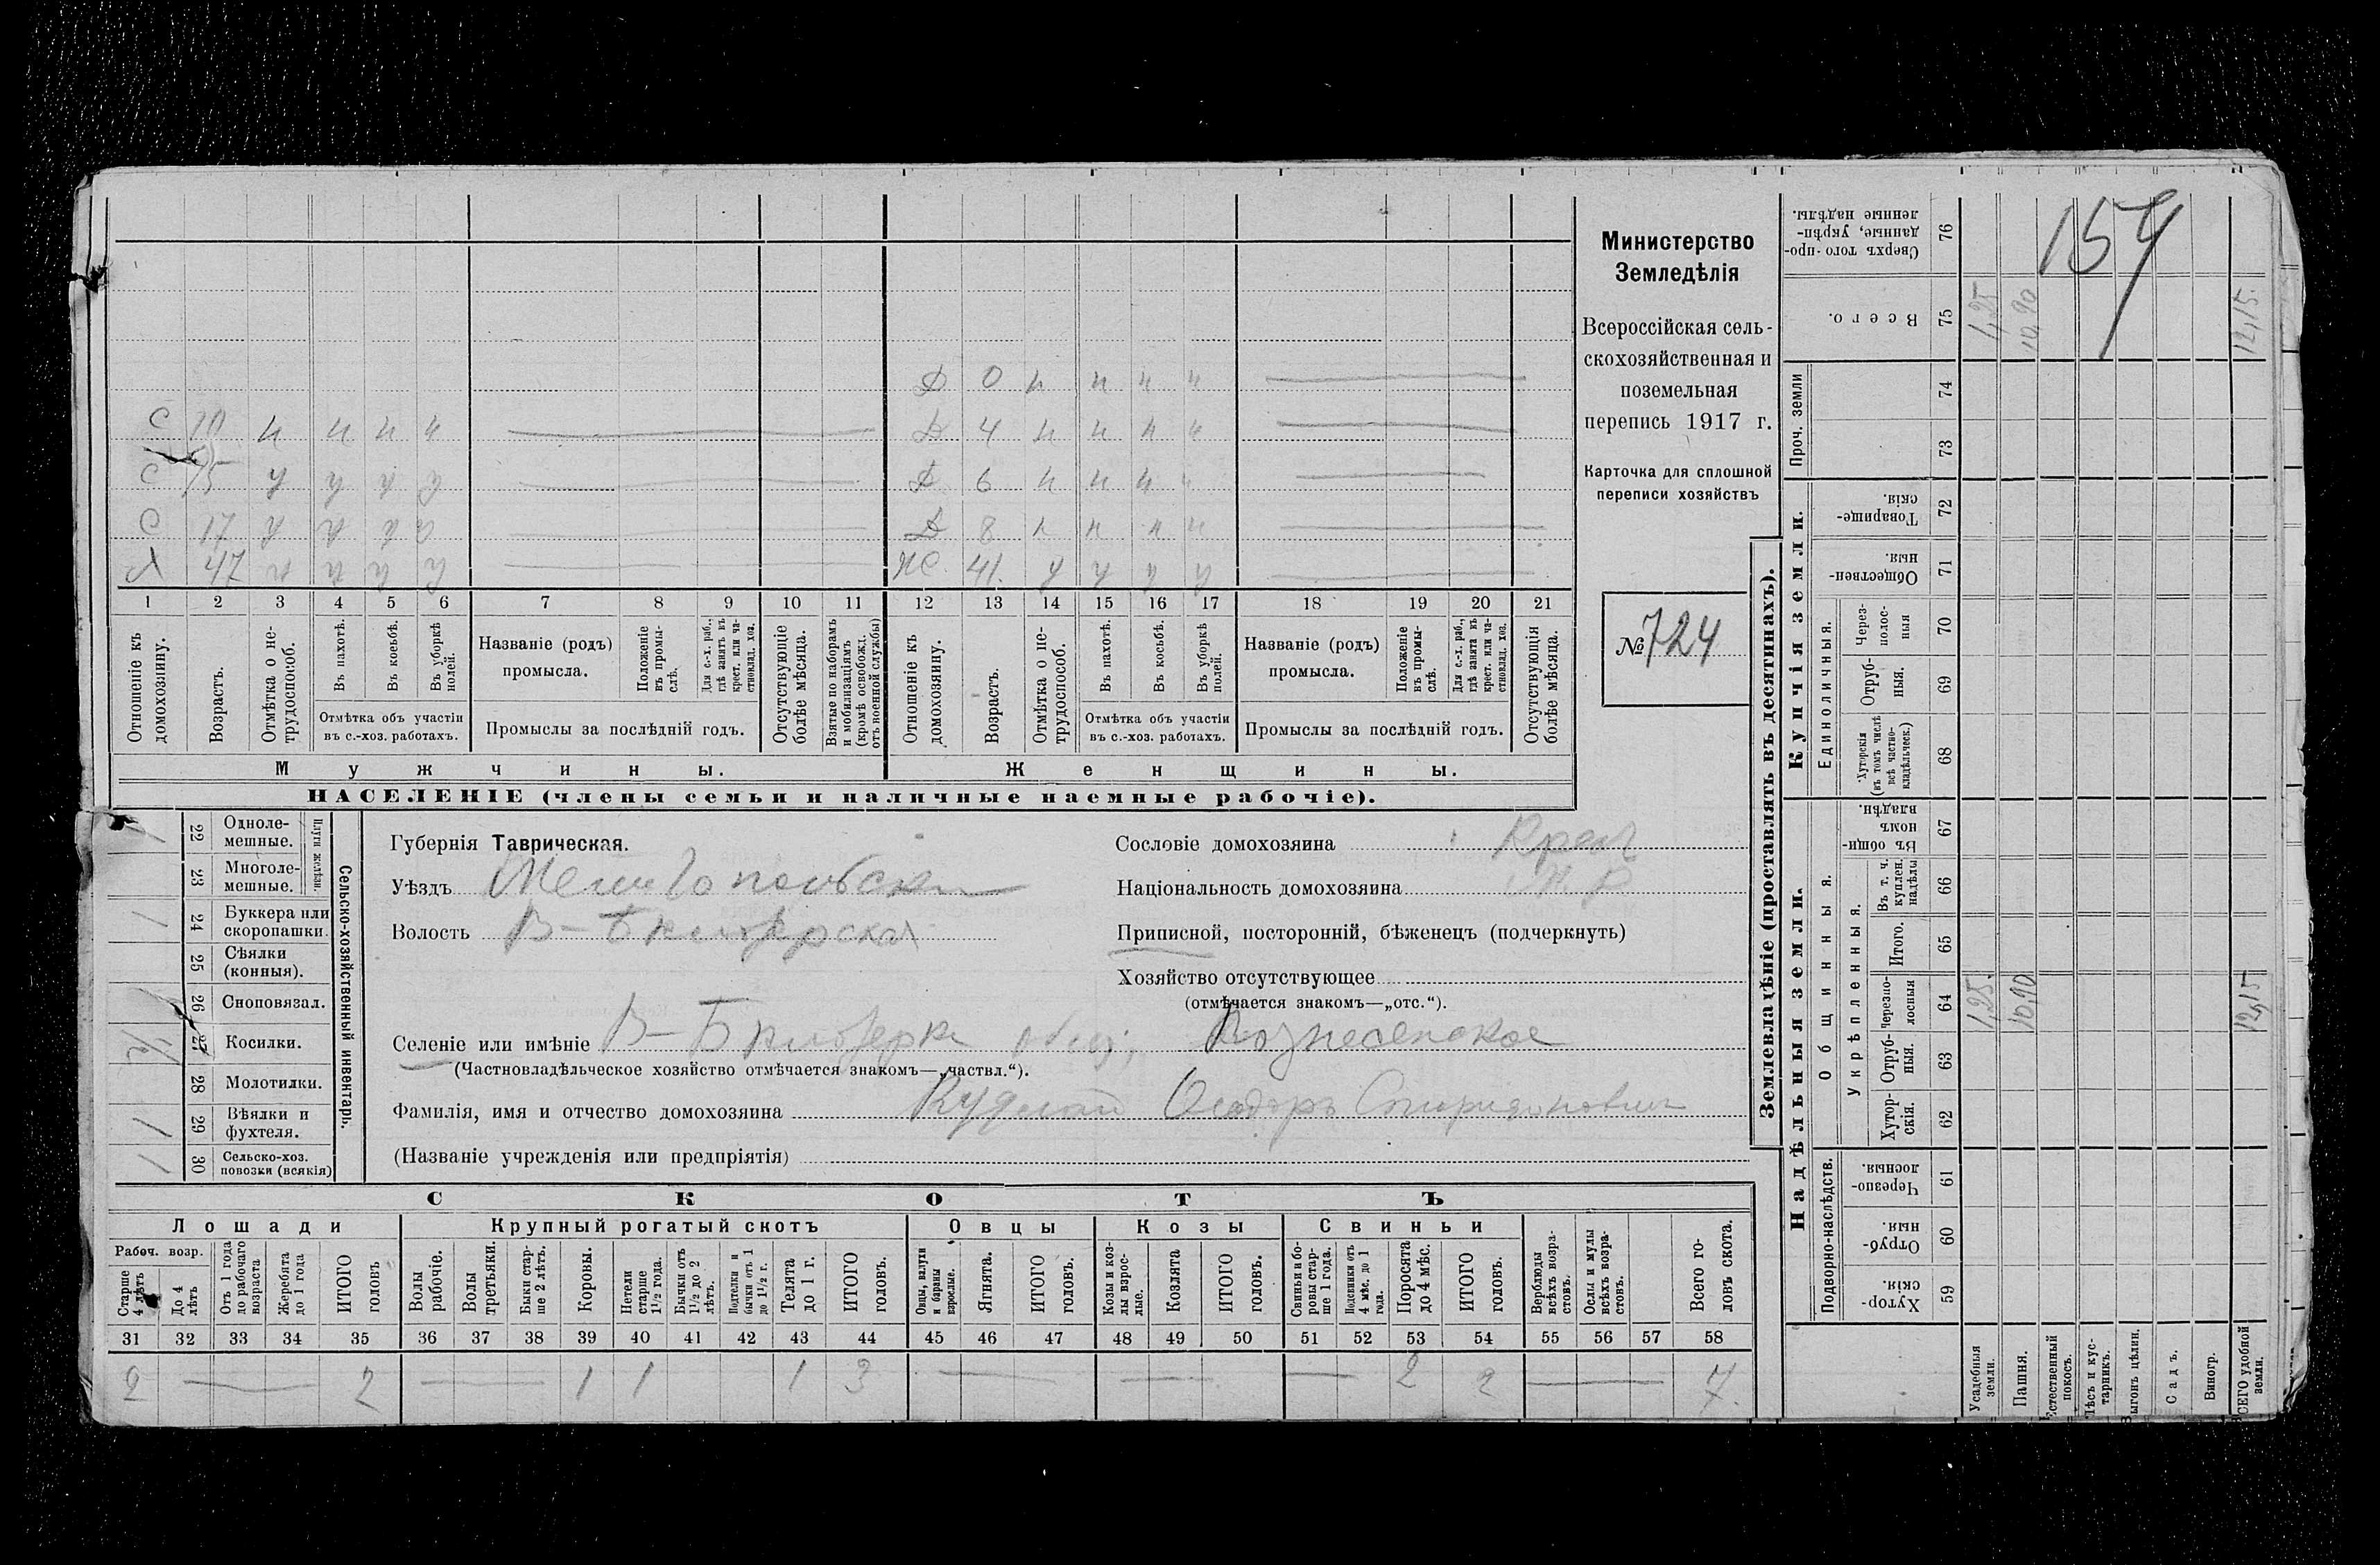 Министерство
Земледѣлія
Всероссійская сель-
скохозяйственная и
поземельная
перепись 1917 г.
Карточка для сплошной
переписи хозяйствъ
№ 724
154
Д 0 н н н н
С 10 н н н н
Д 4 н н н н
С 15 у у у у
Д 6 н н н н
С 17
Д 8 н н н н
Х 47
Ж 41 у у у у
1 2 3 4 5 6 7 8 9 10 11 12 13 14 15 16 17 18 19 20 21
Отношеніе къ домохозяину.
Возрастъ.
Отмѣтка о не-трудоспособ.
Въ пахотѣ.
Въ косьбѣ.
Въ уборкѣ полей.
Отмѣтка объ участіи
въ с.-хоз. работахъ.
Названіе (родъ)
промысла.
Положеніе въ промы-слѣ.
Для с.-х. раб., гдѣ занятъ въ крест. или ча-стновлад. хоз.
Промыслы за послѣдній годъ.
Отсутствующіе болѣе мѣсяца.
Взятые по наборамъ и мобилизаціямъ (кромѣ освобожд. отъ военной службы)
Отношеніе къ домохозяину.
Возрастъ.
Отмѣтка о не-трудоспособ.
Въ пахотѣ.
Въ косьбѣ.
Въ уборкѣ полей.
Отмѣтка объ участіи
въ с.-хоз. работахъ.
Названіе (родъ)
промысла.
Положеніе въ промы-слѣ.
Для с.-х. раб., гдѣ занята въ крест. или ча-стновлад. хоз.
Промыслы за послѣдній годъ.
Отсутствующія болѣе мѣсяца.
Мужчины.
Женщины.
НАСЕЛЕНІЕ (члены семьи и наличные наемные рабочіе).
Сельско-хозяйственный инвентарь.
Плуги желѣзн.
22 Одноле-мешные.
23 Многоле-мешные.
1 24 Буккера или скоропашки.
25 Сѣялки (конныя).
26 Сноповязал.
1/2 27 Косилки.
28 Молотилки.
1 29 Вѣялки и фухтеля.
1 30 Сельско-хоз. повозки (всякія)
Губернія Таврическая.
Уѣздъ Мелитопольскій
Волость В-Бѣлозерская
Сословіе домохозяина Крест
Національность домохозяина
Приписной, посторонній, бѣженецъ (подчеркнуть)
Хозяйство отсутствующее
(отмѣчается знакомъ—„отс.“).
Селеніе или имѣніе В-Бѣлозерка общ; Вознесенское
(Частновладѣльческое хозяйство отмѣчается знакомъ—„частвл.“).
Фамилія, имя и отчество домохозяина Ѳеодоръ Спиридоновичъ
(Названіе учрежденія или предпріятія)
СКОТЪ
Лошади
Крупный рогатый скотъ
Овцы
Козы
Свиньи
Рабоч. возр.
Старше 4 лѣтъ
До 4 лѣтъ
Отъ 1 года до рабочаго возраста
Жеребята до 1 года
ИТОГО головъ
Волы рабочіе.
Волы третьяки.
Быки стар-ше 2 лѣтъ.
Коровы.
Нетели старше 1½ года.
Бычки отъ 1½ до 2 лѣтъ.
Подтелки и бычки отъ 1 до 1½ г.
Телята до 1 г.
ИТОГО головъ.
Овцы, валухи и бараны взрослые.
Ягнята.
ИТОГО головъ.
Козы и коз-лы взрос-лые.
Козлята
ИТОГО головъ.
Свиньи и бо-ровы стар-ше 1 года.
Подсвинки отъ 4 мѣс. до 1 года.
Поросята до 4 мѣс.
ИТОГО головъ.
Верблюды всѣхъ возра-стовъ.
Ослы и мулы всѣхъ возра-стовъ.
Всего го-ловъ скота.
31 32 33 34 35 36 37 38 39 40 41 42 43 44 45 46 47 48 49 50 51 52 53 54 55 56 57 58
2 — 2 — 1 1 1 3 — — — 2 2 — 7
Землевладѣніе (проставлять въ десятинахъ).
Надѣльныя земли.
Купчія земли.
Проч. земли
Подворно-наслѣдств.
Общинныя.
Укрѣпленныя.
Единоличныя.
Хутор-скія. 59
Отруб-ныя. 60
Черезпо-лосныя. 61
Хутор-скія. 62
Отруб-ныя. 63
Черезпо-лосныя 64
Итого. 65
Въ т. ч. куплен. надѣлы 66
Въ общин-номъ владѣн. 67
Хуторскія (въ томъ числѣ всѣ частно-владѣльческ.) 68
Отруб-ныя. 69
Через-полос-ныя 70
Обществен-ныя. 71
Товарище-скія. 72
73
74
Всего. 75
Сверхъ того-про-данные, укрѣп-ленные надѣлы. 76
Усадебныя земли. 1,25 1,25
Пашня. 10,90 10,90
Естественный покосъ.
Лѣсъ и кус-тарникъ.
Выгонъ цѣлин.
Садъ.
Виногр.
ВСЕГО удобной земли. 12,15 12,15